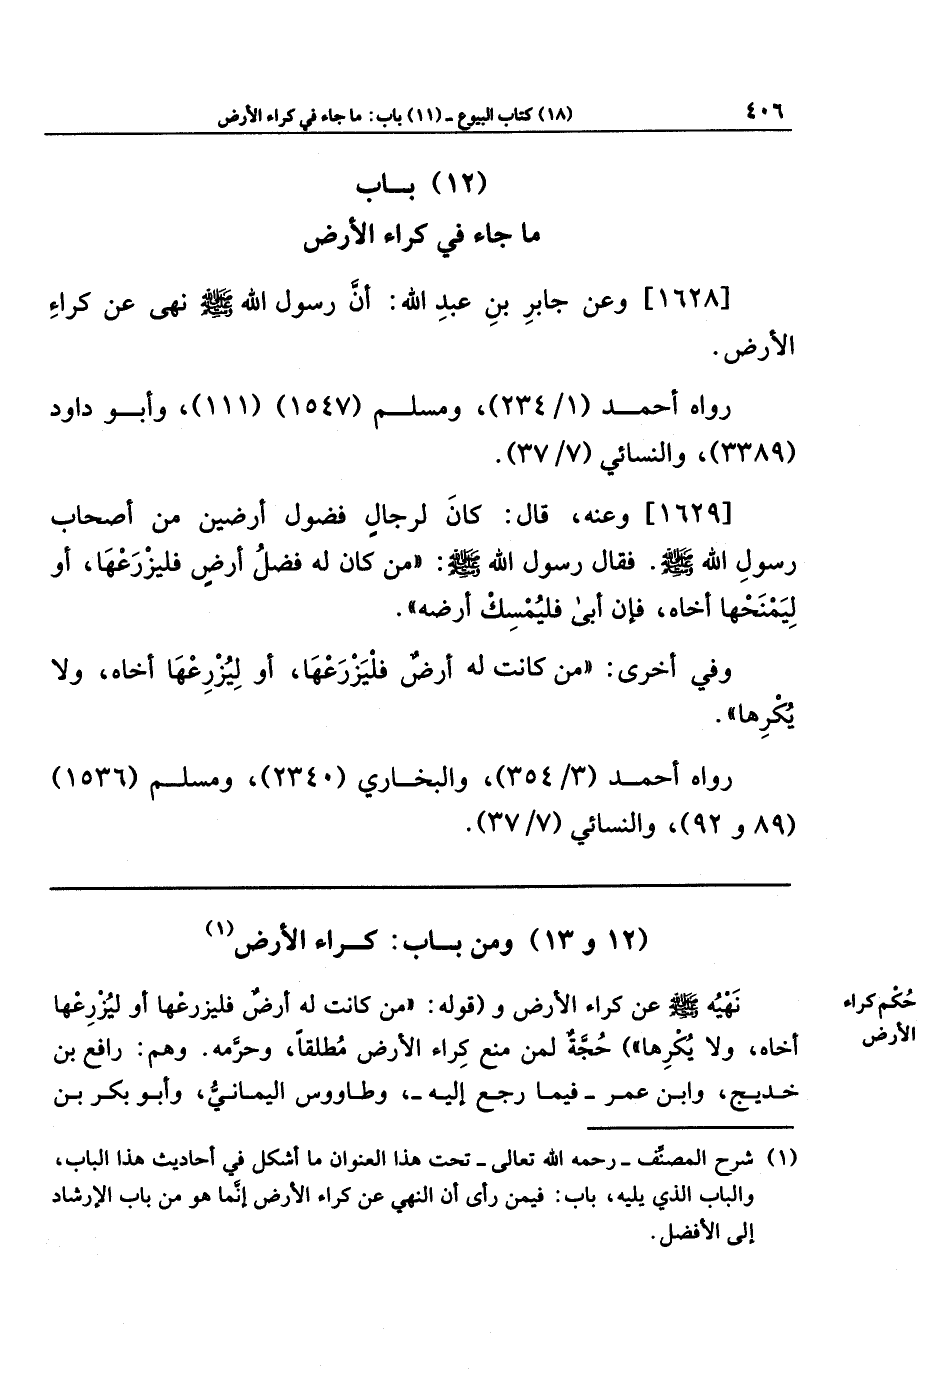 ٤٠٦
(١٨) كتاب البيوع - (١١) باب: ما جاء في كراء الأرض
(١٢) بـــاب
ما جاء في كراء الأرض
[١٦٢٨] وعن جابرِ بنِ عبدِ الله: أنَّ رسول الله ﷺ نهى عن كراءِ
الأرض.
رواه أحمـــد (١/ ٢٣٤)، ومسلـــم (١٥٤٧) (١١١)، وأبـــو داود
(٣٣٨٩)، والنسائي (٧/ ٣٧).
[١٦٢٩] وعنه، قال: كانَ لرجالٍ فضول أرضين من أصحاب
رسولِ الله ﷺ. فقال رسول الله ﷺ: «من كان له فضلُ أرضٍ فليزْرَعْهَا، أو
لِيَمْنَحْها أخاه، فإن أبىٰ فليُمْسِكْ أرضه».
وفي أخرى: «من كانت له أرضٌ فلْيَزْرَعْهَا، أو لِيُزْرِعْهَا أخاه، ولا
يُكْرِها».
رواه أحمـــد (٣/ ٣٥٤)، والبخـــاري (٢٣٤٠)، ومسلـــم (١٥٣٦)
(٨٩ و ٩٢)، والنسائي (٧/ ٣٧).
(١٢ و ١٣) ومن بـــاب: كـــراء الأرض(١)
حُكْم كراء
الأرض
نَهْيُه ﷺ عن كراء الأرض و (قوله: «من كانت له أرضٌ فليزرعْها أو ليُزْرِعْها
أخاه، ولا يُكْرِها») حُجَّةٌ لمن منع كِراء الأرض مُطلقاً، وحرَّمه. وهم: رافع بن
خديـج، وابـن عمـر ـ فيمـا رجـع إليـه ـ، وطـاووس اليمانـيُّ، وأبـو بكـر بـن
(١) شرح المصنِّف ـ رحمه الله تعالى ـ تحت هذا العنوان ما أشكل في أحاديث هذا الباب،
والباب الذي يليه، باب: فيمن رأى أن النهي عن كراء الأرض إنَّما هو من باب الإرشاد
إلى الأفضل.